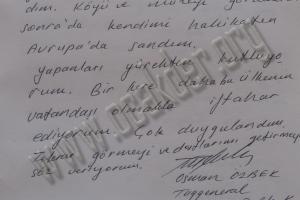 dım. Köyü ve
sonra'da kendimi hakikatten
Avrupa'da sandım.
yapanları yürekten kutluyo
rum. Bir kere daha bu ülkenin
vatandaşı olmakla iftahar
ediyorum. Çok duygulandım.
Tekrar görmeyi ve dostlarımı getirmeye
söz veriyorum.
Osman ÖZBEK
Tuggeneral